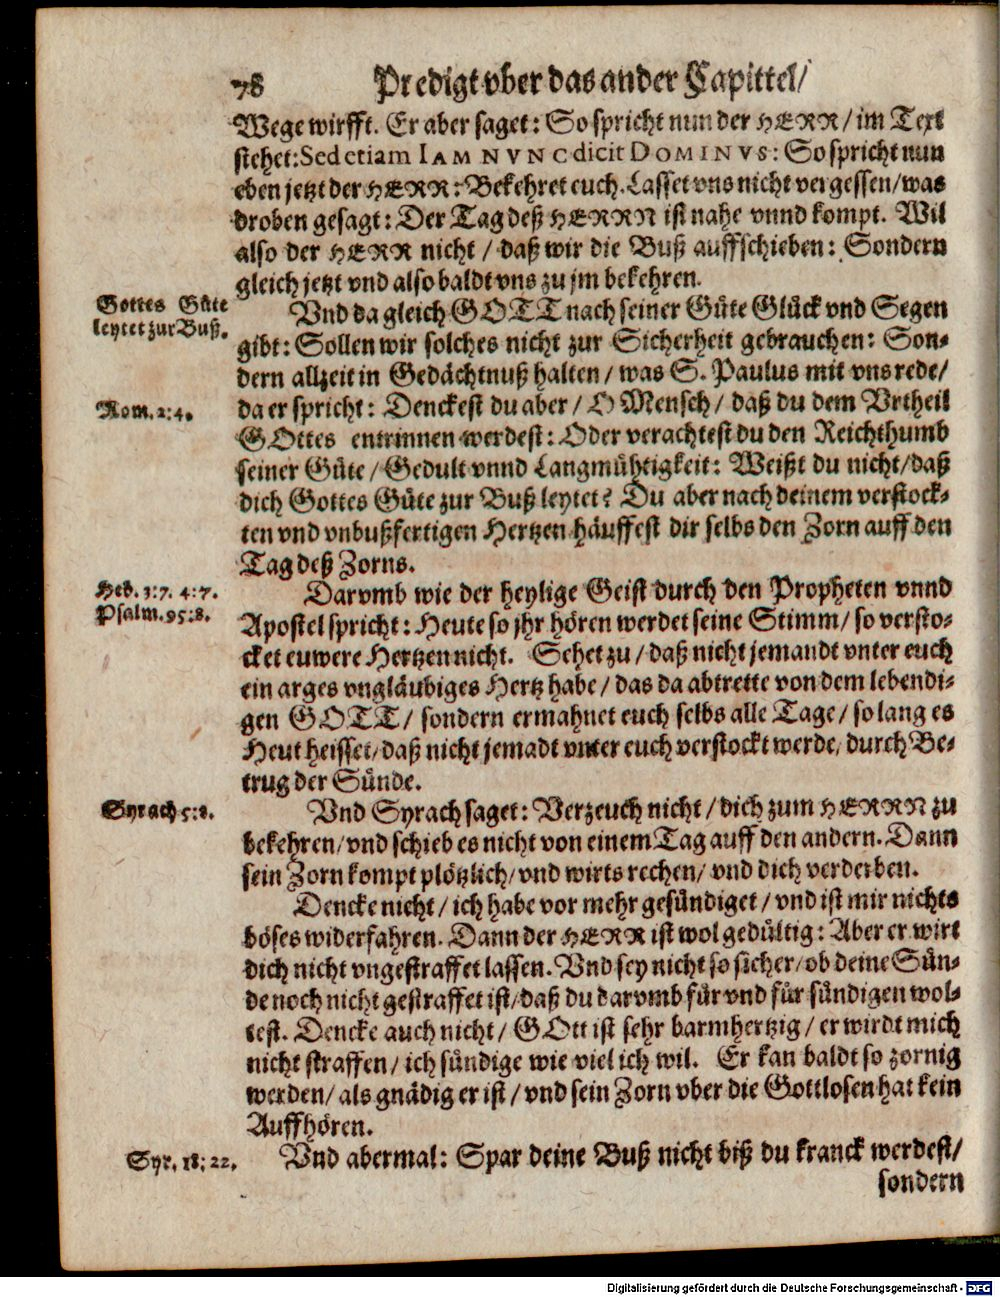 78 Predigt vber das ander Capittel/
Wege wirfft. Er aber saget: So spricht nun der HERR/ im Text
stehet: Sed etiam IAM NVNC dicit DOMINVS: So spricht nun
eben jetzt der HERR: Bekehret euch. Lasset vns nicht vergessen/ was
droben gesagt: Der Tag deß HERRN ist nahe vnnd kompt. Wil
also der HERR nicht / daß wir die Buß auffschieben: Sondern
gleich jetzt vnd also baldt vns zu jm bekehren.
Gottes Güte
leytet zur Buß.
Vnd da gleich GOTT nach seiner Güte Glück vnd Segen
gibt: Sollen wir solches nicht zur Sicherheit gebrauchen: Son-
dern allzeit in Gedächtnuß halten / was S. Paulus mit vns rede/
Rom. 2:4.
da er spricht: Denckest du aber / O Mensch / daß du dem Vrtheil
GOttes entrinnen werdest: Oder verachtest du den Reichthumb
seiner Güte / Gedult vnnd Langmühtigkeit: Weißt du nicht/ daß
dich Gottes Güte zur Buß leytet? Du aber nach deinem verstock-
ten vnd vnbußfertigen Hertzen häuffest dir selbs den Zorn auff den
Tag deß Zorns.
Heb. 3:7. 4:7.
Psalm. 95:8.
Darvmb wie der heylige Geist durch den Propheten vnnd
Apostel spricht: Heute so jhr hören werdet seine Stimm / so versto-
cket euwere Hertzen nicht. Sehet zu / daß nicht jemandt vnter euch
ein arges vngläubiges Hertz habe / das da abtrette von dem lebendi-
gen GOTT / sondern ermahnet euch selbs alle Tage / so lang es
Heut heisset/ daß nicht jemadt vnter euch verstockt werde, durch Be-
trug der Sünde.
Syrach 5:8.
Vnd Syrach saget: Verzeuch nicht / dich zum HERRN zu
bekehren/ vnd schieb es nicht von einem Tag auff den andern. Dann
sein Zorn kompt plötzlich/ vnd wirts rechen/ vnd dich verderben.
Dencke nicht / ich habe vor mehr gesündiget / vnd ist mir nichts
böses widerfahren. Dann der HERR ist wol gedültig: Aber er wirt
dich nicht vngestraffet lassen. Vnd sey nicht so sicher/ ob deine Sün-
de noch nicht gestraffet ist/ daß du darvmb für vnd für sündigen wol-
test. Dencke auch nicht / GOtt ist sehr barmhertzig / er wirdt mich
nicht straffen / ich sündige wie viel ich wil. Er kan baldt so zornig
werden / als gnädig er ist / vnd sein Zorn vber die Gottlosen hat kein
Auffhören.
Syr. 18:22.
Vnd abermal: Spar deine Buß nicht biß du kranck werdest/
sondern
Digitalisierung gefördert durch die Deutsche Forschungsgemeinschaft - DFG